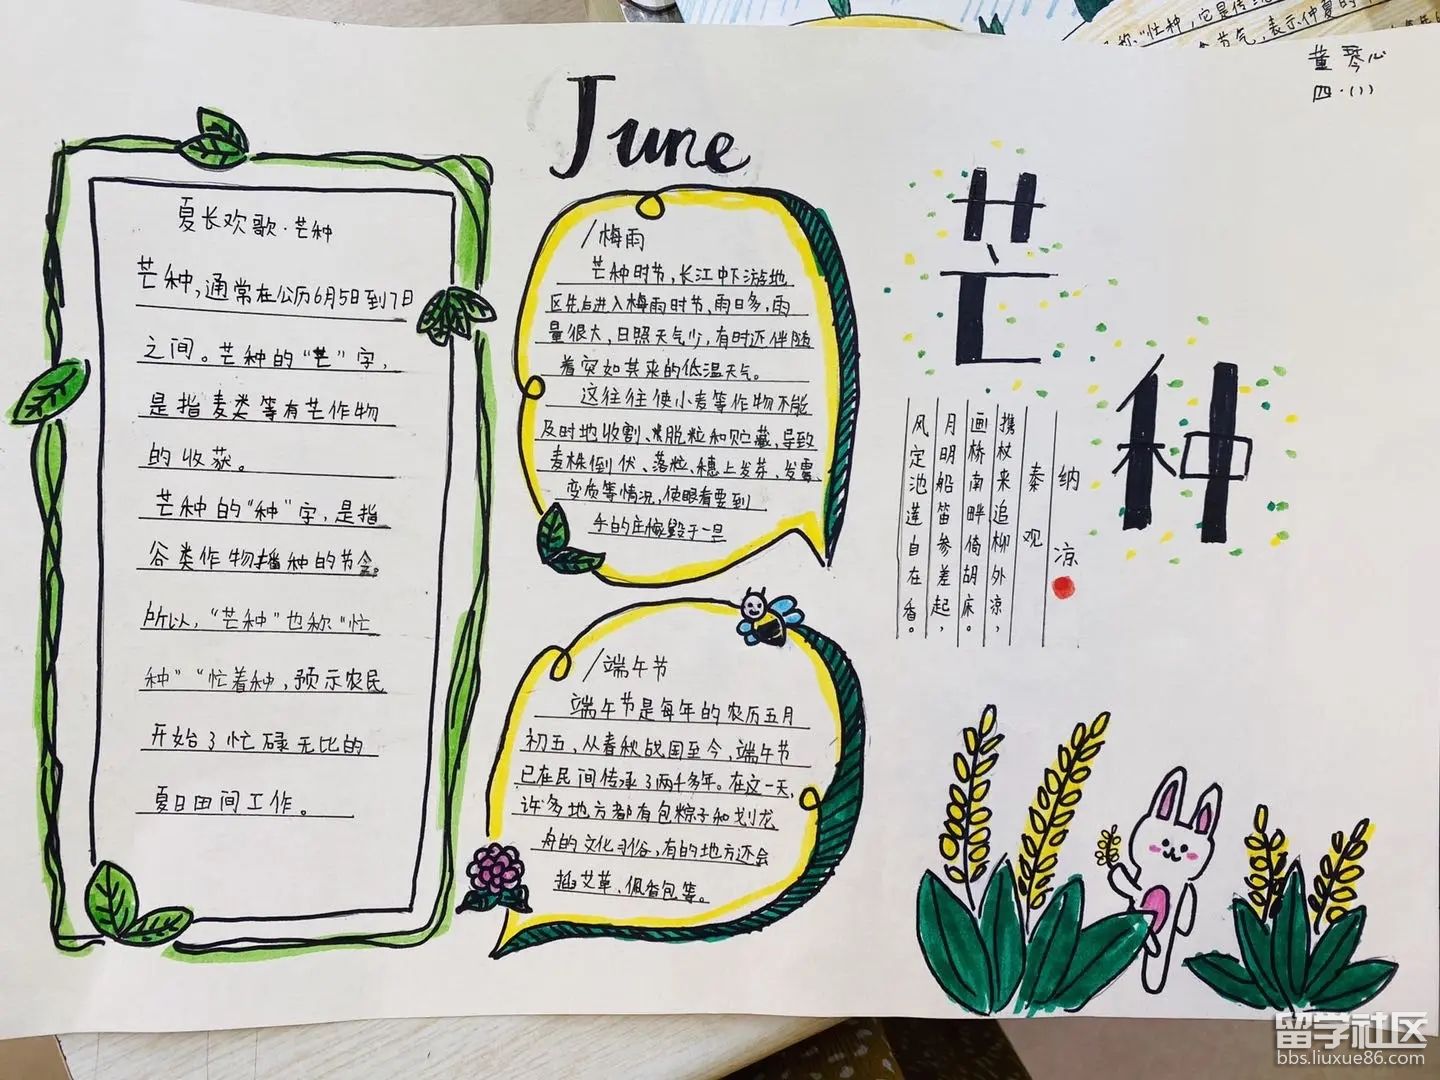 称"忙种，它是传
节气，表示仲夏的
董琴心
四·(1)
June
夏长欢歌·芒种
芒种，通常在公历6月5日到7日
之间。芒种的"芒"字，
是指麦类等有芒作物
的收获。
芒种的"种"字，是指
谷类作物播种的节令。
所以，"芒种"也称"忙
种""忙着种，预示农民
开始了忙碌无比的
夏日田间工作。
/梅雨
芒种时节，长江中下游地
区先后进入梅雨时节、雨日多，雨
量很大，日照天气少，有时还伴随
着突如其来的低温天气。
这往往使小麦等作物不能
及时地收割、脱粒和贮藏，导致
麦株倒伏、落粒、穗上发芽、发霉、
变质等情况，使眼看要到
手的庄稼毁于一旦
/端午节
端午节是每年的农历五月
初五，从春秋战国至今，端午节
已在民间传承了两千多年。在这一天，
许多地方都有包粽子和划龙
舟的文化习俗，有的地方还会
插艾草、佩香包等。
芒种
纳凉
秦观
携杖来追柳外凉，
画桥南畔倚胡床。
月明船笛参差起，
风定池莲自在香。
留学社区
bbs.liuxue86.com